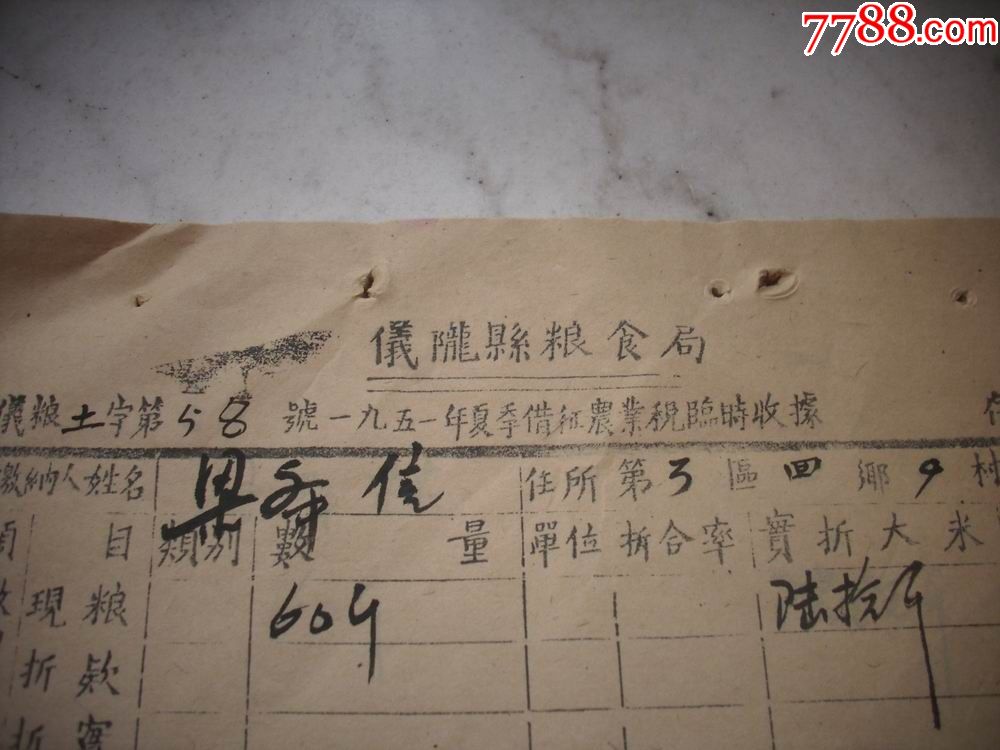 7788.com
儀隴縣粮食局
儀粮土字第58號一九五一年夏季借征農業税臨時收據
繳納人姓名 信 住所第3區四鄉9村
項目 類别 數量 單位 折合率 實折大米
現粮 60斤 陆拾斤
折欵
折